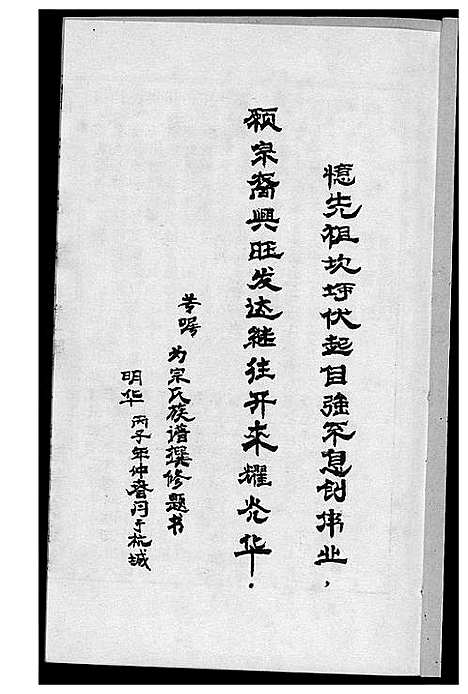 憶先祖坎坷伏起自強不息创伟业，
愿宗裔興旺发达继往开来耀光华！
芳嘱 为宗氏族谱撰修题书
明华 丙子年仲春月于杭城